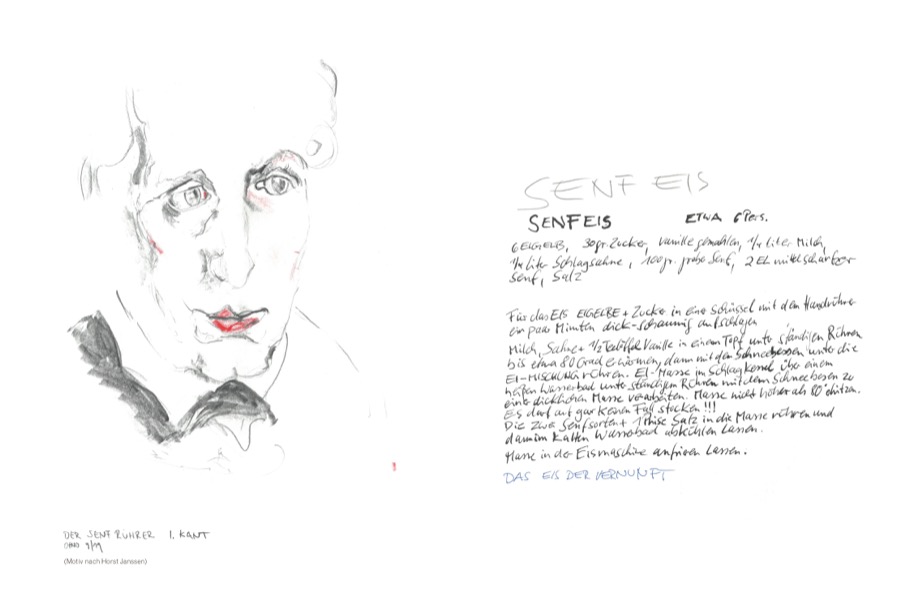 SENF EIS
SENFEIS ETWA 6 Pers.
6 EIGELB, 30gr. Zucker, Vanille gemahlen, 1/4 Liter Milch,
1/4 Liter Schlagsahne, 100gr. grobe Senf, 2 EL mittelscharfer
Senf, Salz
Für das EIS EIGELBE + Zucker in eine Schüssel mit dem Handrührer
ein paar Minuten dick-schaumig aufschlagen
Milch, Sahne + 1/2 Teelöffel Vanille in einem Topf unter ständigen Rühren
bis etwa 80 Grad erwärmen, dann mit den Schneebesen unter die
EI-MISCHUNG rühren. EI-Masse im Schlagkessel über einem
heißen Wasserbad unter ständigem Rühren mit dem Schneebesen zu
eine dicklichen Masse verarbeiten. Masse nicht höher als 80° erhitzen.
Es darf auf gar keinen Fall stocken !!!
Die zwei Senfsorten + 1 Prise Salz in die Masse rühren und
dann im kalten Wasserbad abkühlen lassen.
Masse in der Eismaschine anfrieren lassen.
DAS EIS DER VERNUNFT
DER SENF RÜHRER I. KANT
9/19
(Motiv nach Horst Janssen)